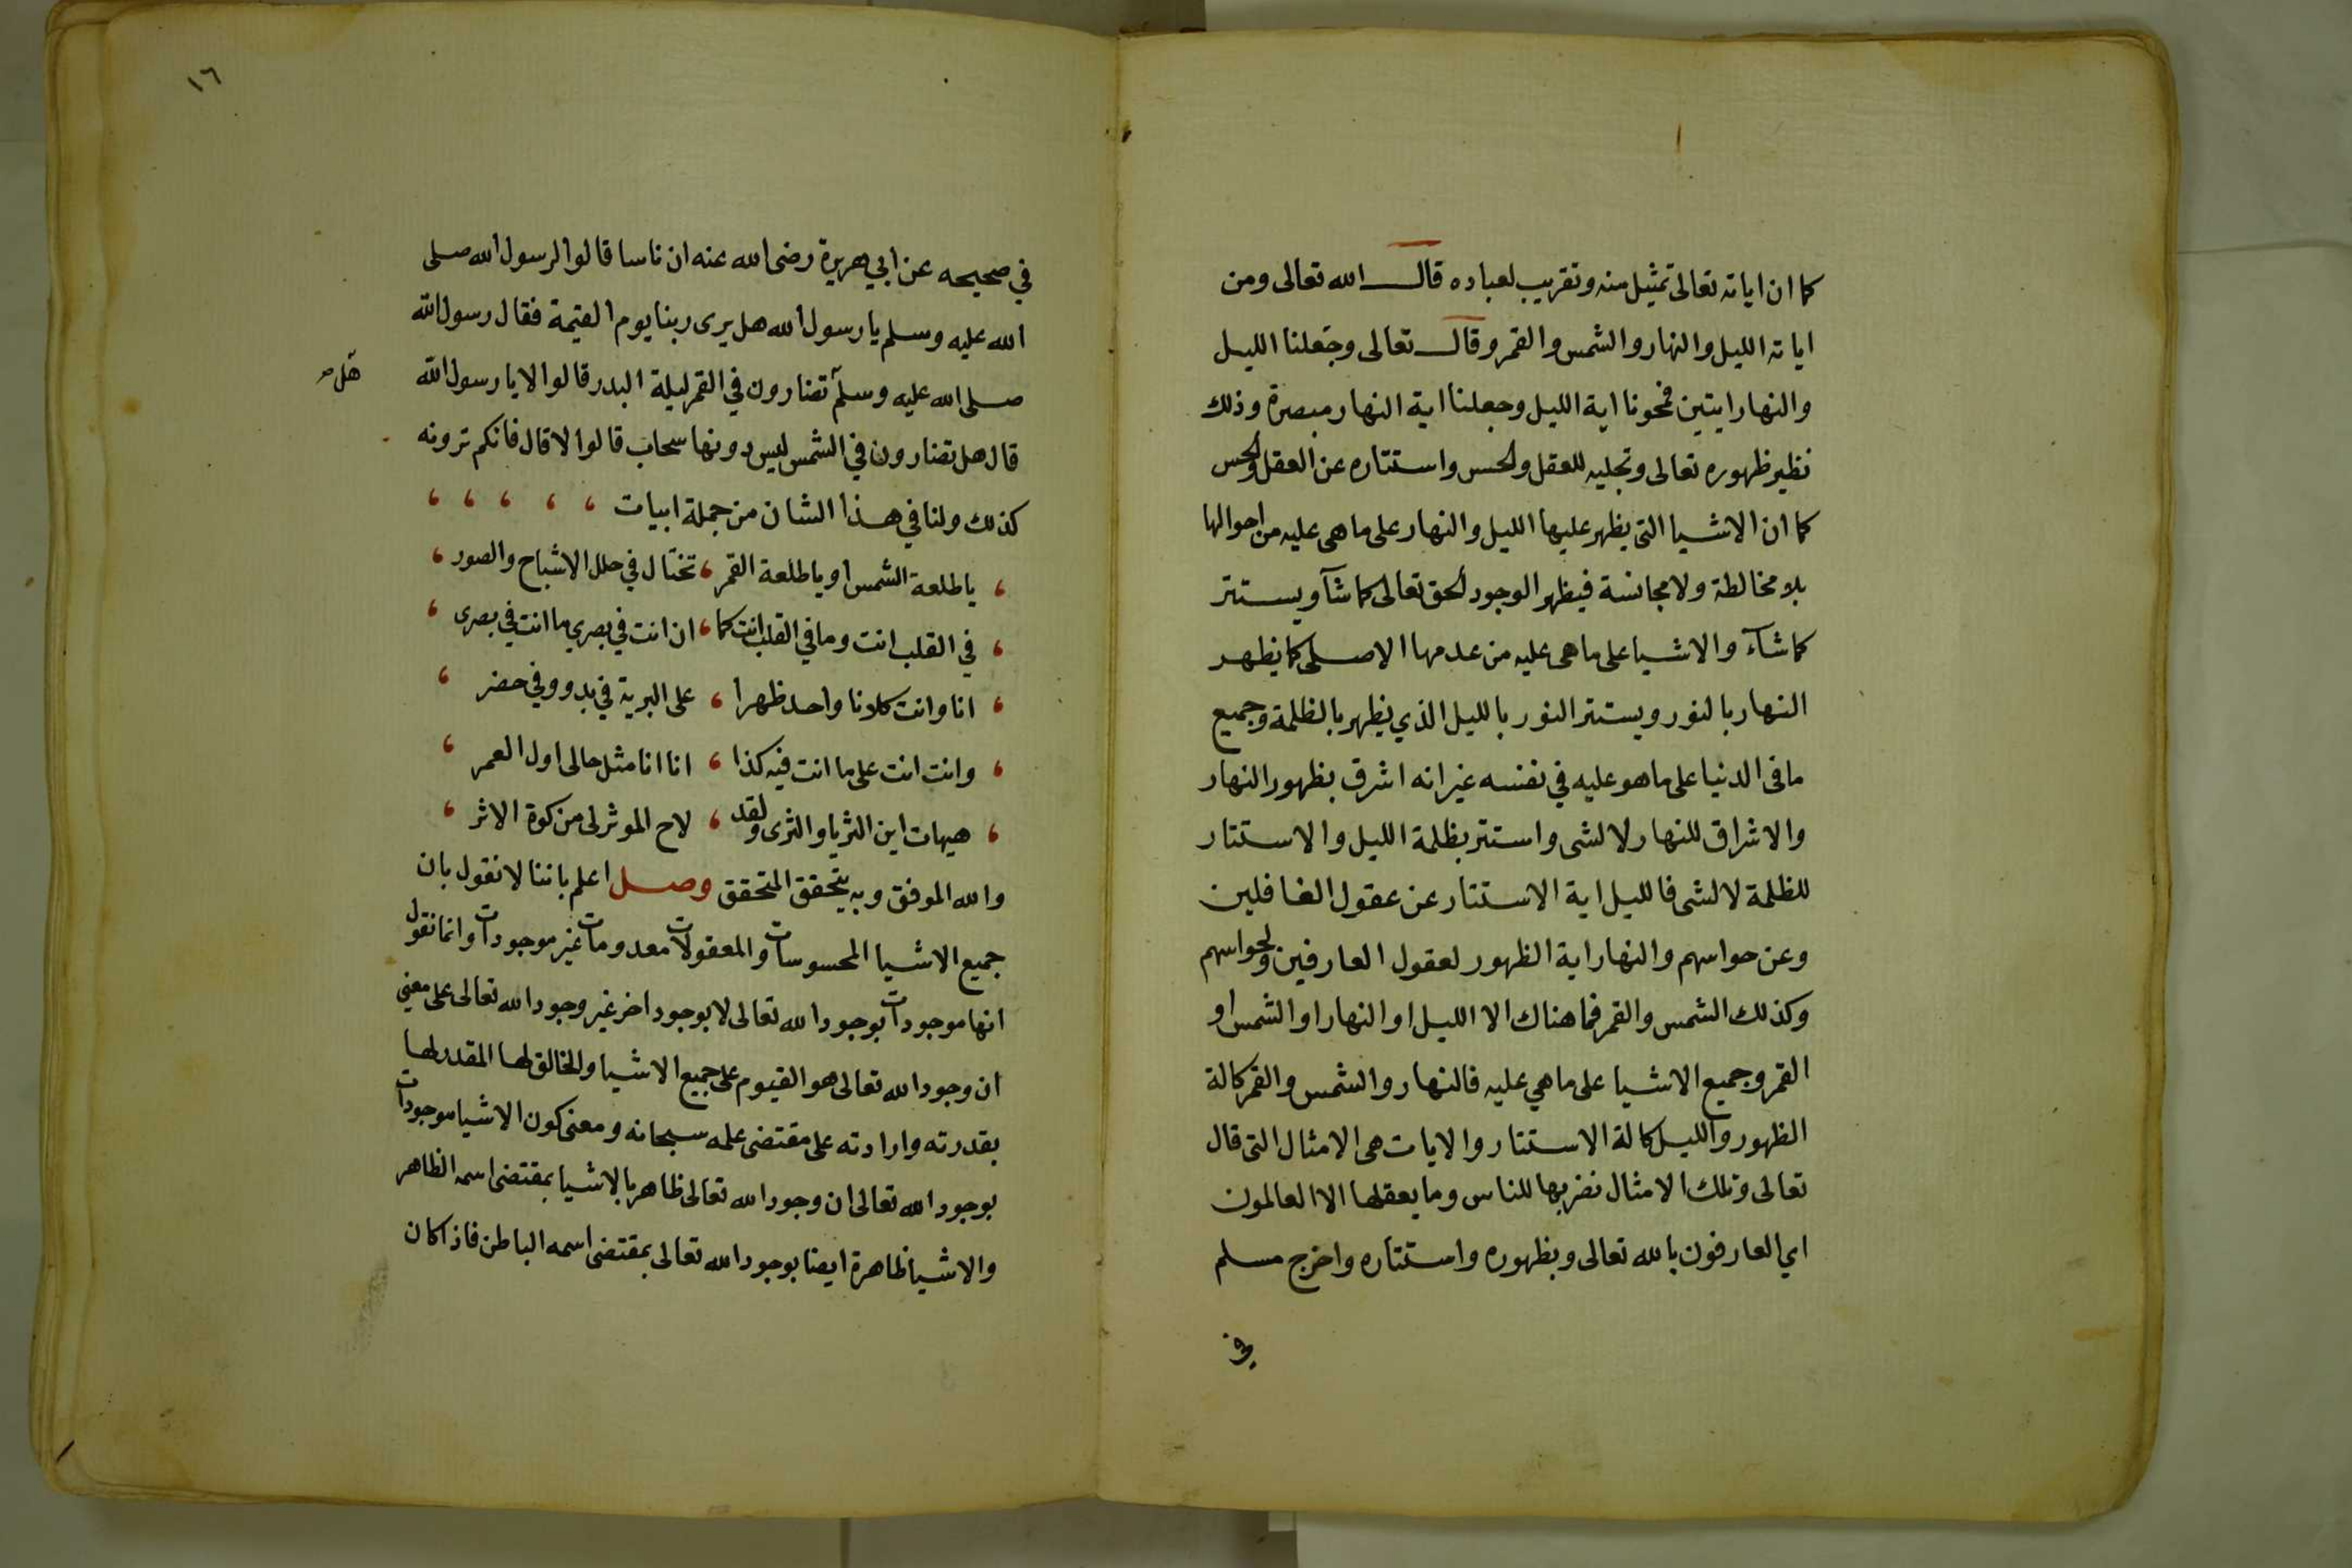 كما ان اياته تعالى تمثيل منه وتقريب لعباده قال الله تعالى ومن
اياته الليل والنهار والشمس والقمر وقال تعالى وجعلنا الليل
والنهار ايتين فمحونا اية الليل وجعلنا اية النهار مبصرة وذلك
نظير ظهوره تعالى وتجليه للعقل ولحس واستتاره عن العقل ولحس
كما ان الاشيا التي يظهر عليها الليل والنهار على ما هي عليه من احوالها
بلا مخالطة ولا مجانسة فيظهر الوجود لحق تعالى كما شآ ويستتر
كما شآء والاشيا على ما هي عليه من عدمها الاصلي كما يظهر
النهار بالنور ويستتر النور بالليل الذي يظهر بالظلمة وجميع
ما في الدنيا على ما هو عليه في نفسه غير انه اشرق بظهور النهار
والاشراق للنهار لا لشي واستتر بظلمة الليل والاستتار
للظلمة لا لشي فالليل اية الاستتار عن عقول الغافلين
وعن حواسهم والنهار اية الظهور لعقول العارفين ولحواسهم
وكذلك الشمس والقمر فما هناك الا الليل او النهار او الشمس او
القمر وجميع الاشيا على ما هي عليه فالنهار والشمس والقمر كالة
الظهور والليل كالة الاستتار والايات هي الامثال التي قال
تعالى وتلك الامثال نضربها للناس وما يعقلها الا العالمون
اي العارفون بالله تعالى وبظهوره واستتاره واخرج مسلم
في
١٦
في صحيحه عن ابي هريرة رضي الله عنه ان ناسا قالوا لرسول الله صلى
الله عليه وسلم يا رسول الله هل يرى ربنا يوم القيمة فقال رسول الله
صلى الله عليه وسلم تضارون في القمر ليلة البدر قالوا لا يا رسول الله
هل صح
قال هل تضارون في الشمس ليس دونها سحاب قالوا لا قال فانكم ترونه
كذلك ولنا في هذا الشان من جملة ابيات
يا طلعة الشمس او يا طلعة القمر ، تختال في حلل الاشباح والصور
في القلب انت وما في القلب انت كما ، ان انت في بصري ما انت في بصري
انا وانت كلانا واحد ظهرا ، على البرية في بدو وفي حضر
وانت انت على ما انت فيه كذا ، انا انا مثل حالي اول العمر
هيهات اين الثريا والثرى ولقد ، لاح الموثر لي من كوة الاثر
والله الموفق وبه يتحقق المتحقق وصل اعلم باننا لا نقول بان
جميع الاشيا المحسوسات والمعقولات معدومات غير موجودات وانما نقول
انها موجودات بوجود الله تعالى لا بوجود اخر غير وجود الله تعالى على معنى
ان وجود الله تعالى هو القيوم على جميع الاشيا والخالق لها المقدر لها
بقدرته وارادته على مقتضى علمه سبحانه ومعنى كون الاشيا موجودات
بوجود الله تعالى ان وجود الله تعالى ظاهر بالاشيا بمقتضى اسمه الظاهر
والاشيا ظاهرة ايضا بوجود الله تعالى بمقتضى اسمه الباطن فاذا كان